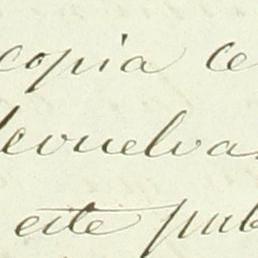 copia ce
devuelva
este pub